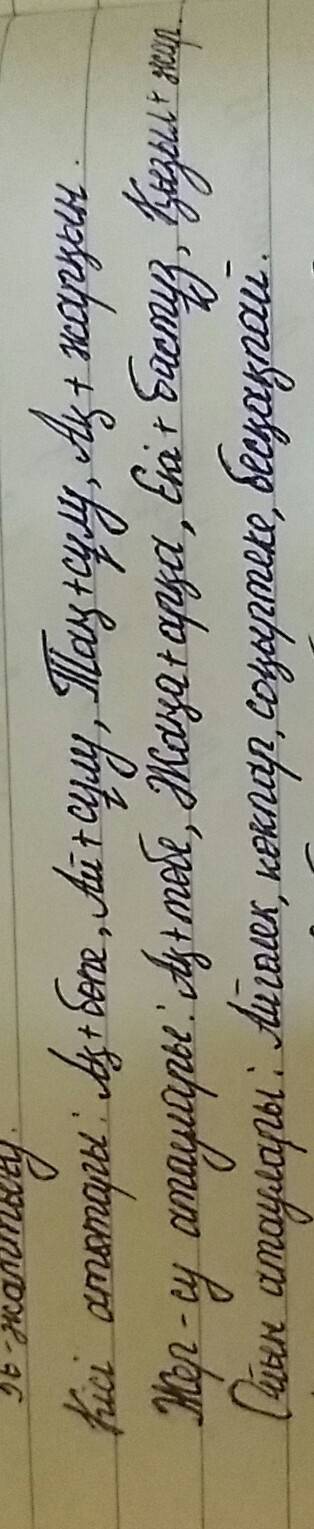 96-жаттығу.
Кісі аттары: Ақ + бөпе, Ай + сұлу, Таң + сұлу, Ақ + жарқын.
Жер-су атаулары: Ақ + төбе, Жаңа + арқа, Екі + бастұз, Қызыл + жар.
Ойын атаулары: Айгөлек, көкпар, соқыртеке, бесқақпай.